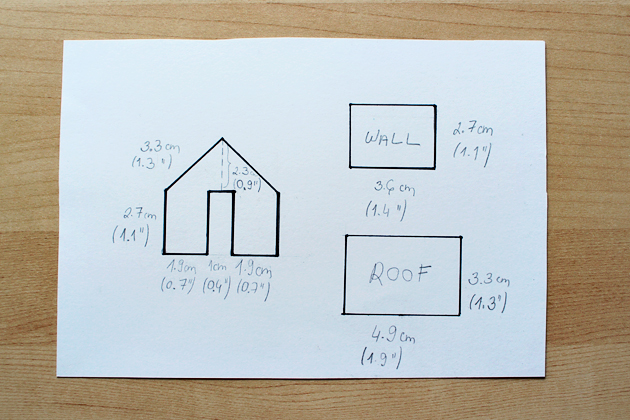 3.3 cm
(1.3")
2.3
(0.9")
2.7 cm
(1.1")
1.9cm 1cm 1.9cm
(0.7") (0.4") (0.7")
WALL
2.7cm
(1.1")
3.6 cm
(1.4")
ROOF
3.3 cm
(1.3")
4.9 cm
(1.9")